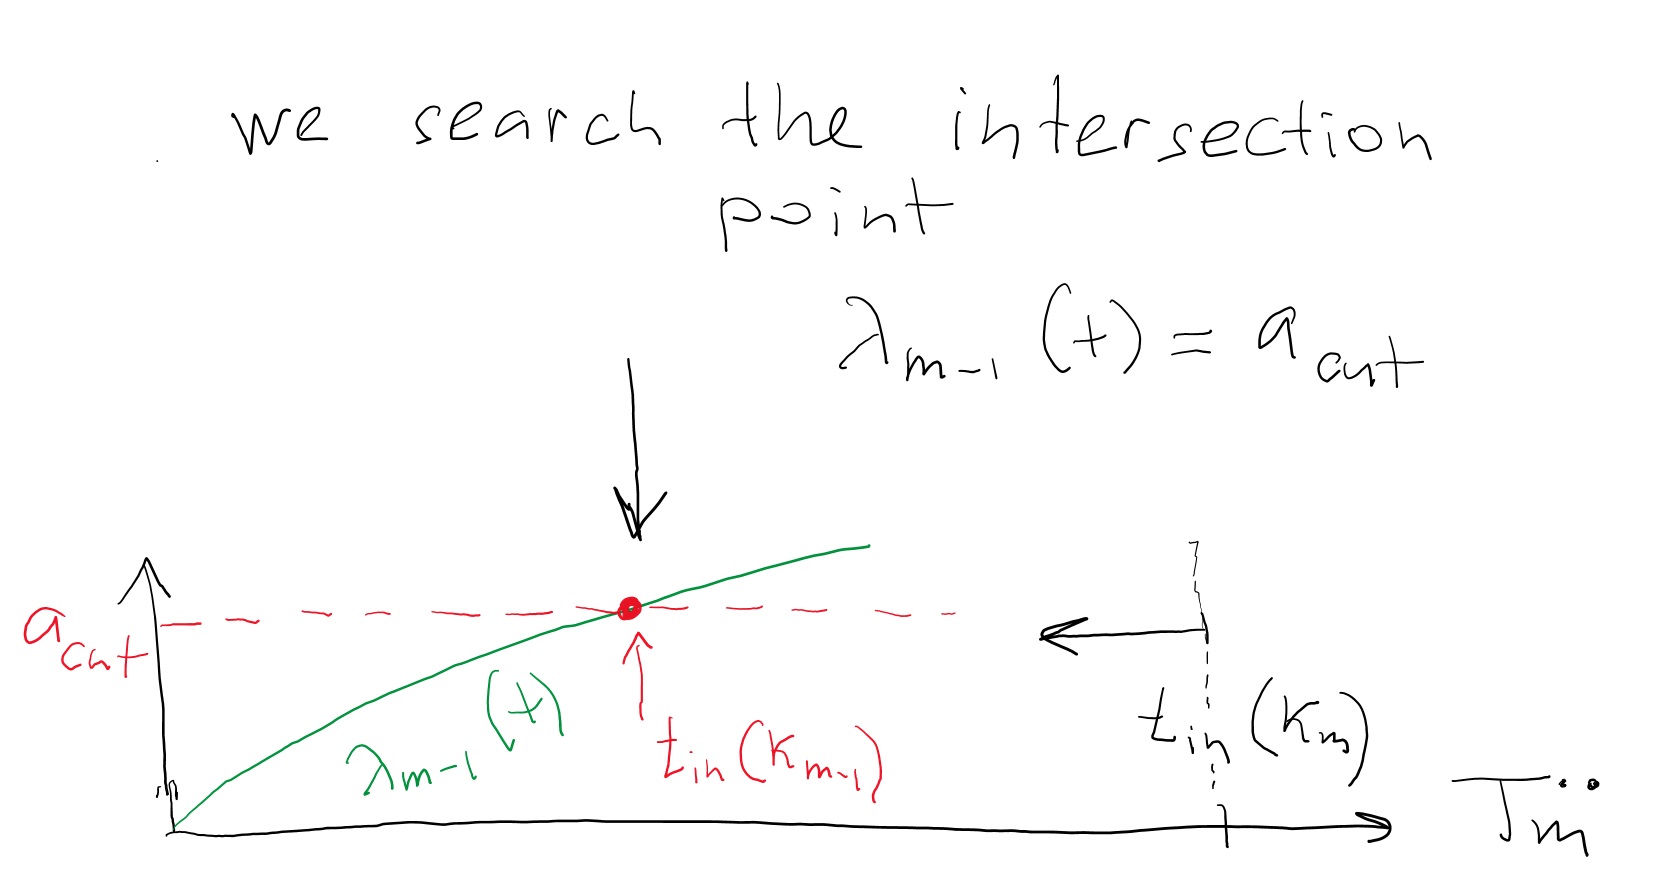 we search the intersection
point
λ_{m-1} (t) = a_{cut}
a_{cut}
λ_{m-1} (t)
t_{in} (K_{m-1})
t_{in} (K_m)